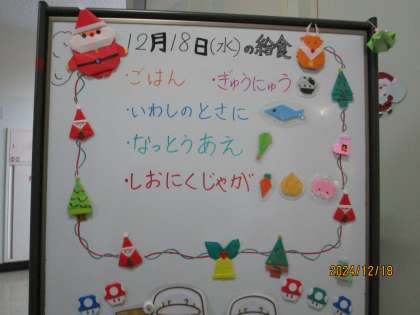 12月18日(水)の給食
・ごはん ・ぎゅうにゅう
・いわしのとさに
・なっとうあえ
・しおにくじゃが
2024/12/18